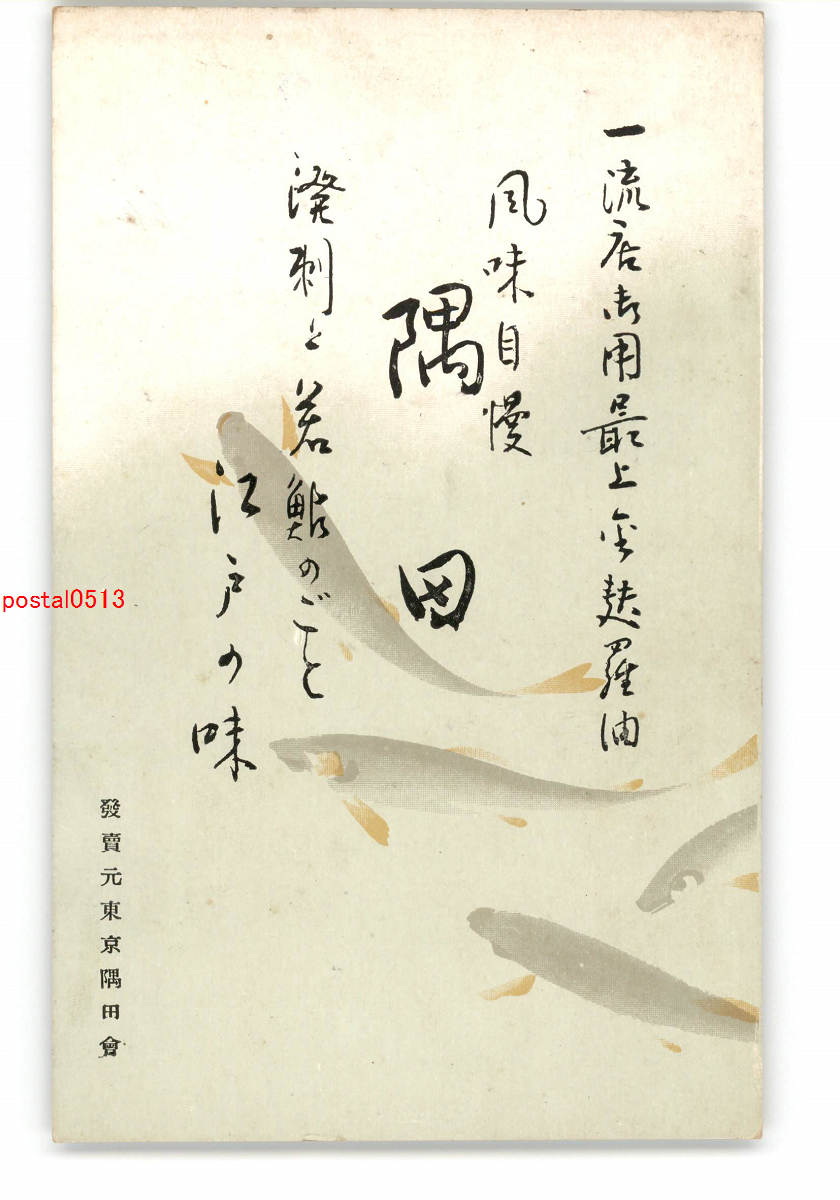 一流店御用最上金麩羅油
風味自慢
隅田
溌剌と若鮎のごと
江戸の味
發賣元東京隅田會
postal0513